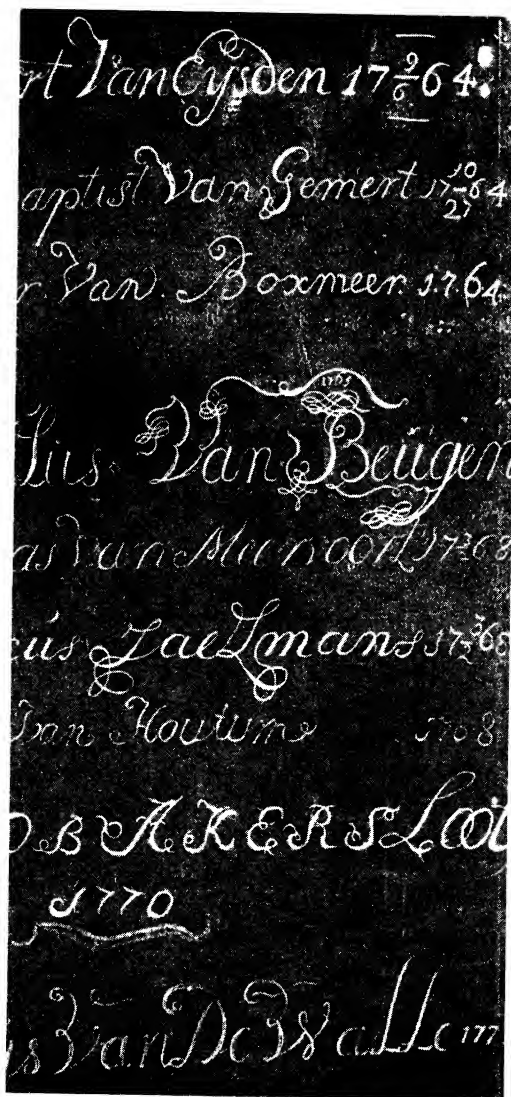 rt Van Eÿsden 17 9/6 64.
aptist Van Gemert 17 10/27 64
r. Van. Boxmeer. 1764.
1765
Van Beügen
as Van
cüs Zaelmans 17 68
Van Houtum 1768
OB AKERSLoot
1770
Van De Wallem